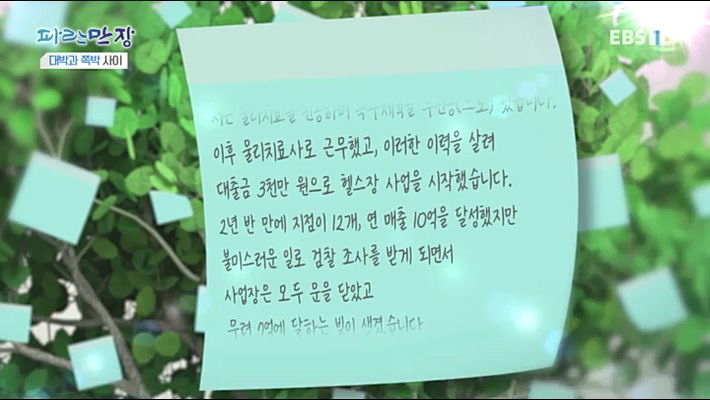 파란만장
대박과 쪽박 사이
EBS1
이후 물리치료사로 근무했고, 이러한 이력을 살려
대출금 3천만 원으로 헬스장 사업을 시작했습니다.
2년 반 만에 지점이 12개, 연 매출 10억을 달성했지만
불미스러운 일로 검찰 조사를 받게 되면서
사업장은 모두 문을 닫았고
무려 7억에 달하는 빚이 생겼습니다